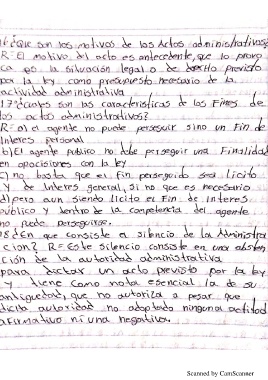 16¿Que son los motivos de los Actos administrativos?
R= El motivo del acto es antecedente, que lo provo
ca es la situación legal o de hecho previsto
por la ley como presupuesto necesario de la
actividad administrativa
17¿cuales son las caracteristicas de los Fines de
los actos administrativos?
R= a) el agente no puede perseguir sino un Fin de
Interes personal
b) El agente publico no debe perseguir una Finalidad
en oposiciones con la ley
c) no basta que el fin perseguido sea licito
y de Interes general, si no que es necesario
d) pero aun siendo licito el Fin de Interes
publico y dentro de la competencia del agente
no puede perseguirse.
18¿En que consiste el silencio de la Administra
cion? R= Este silencio consiste en una absten
ción de la autoridad administrativa
para dictar un acto previsto por la ley
y tiene como nota esencial la de su
antiguedad, que no autoriza a pesar que
dicha autoridad no adoptado ninguna actitud
afirmativo ni una negativa.
Scanned by CamScanner